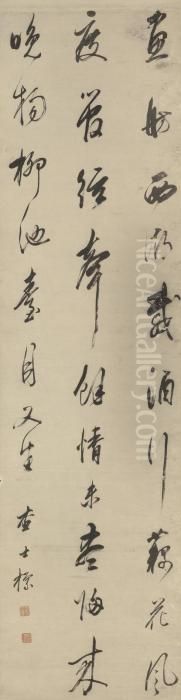 畫舫西湖載酒行藕花風
度管絃聲餘情未盡歸來
晚楊柳池臺月又生 查士標